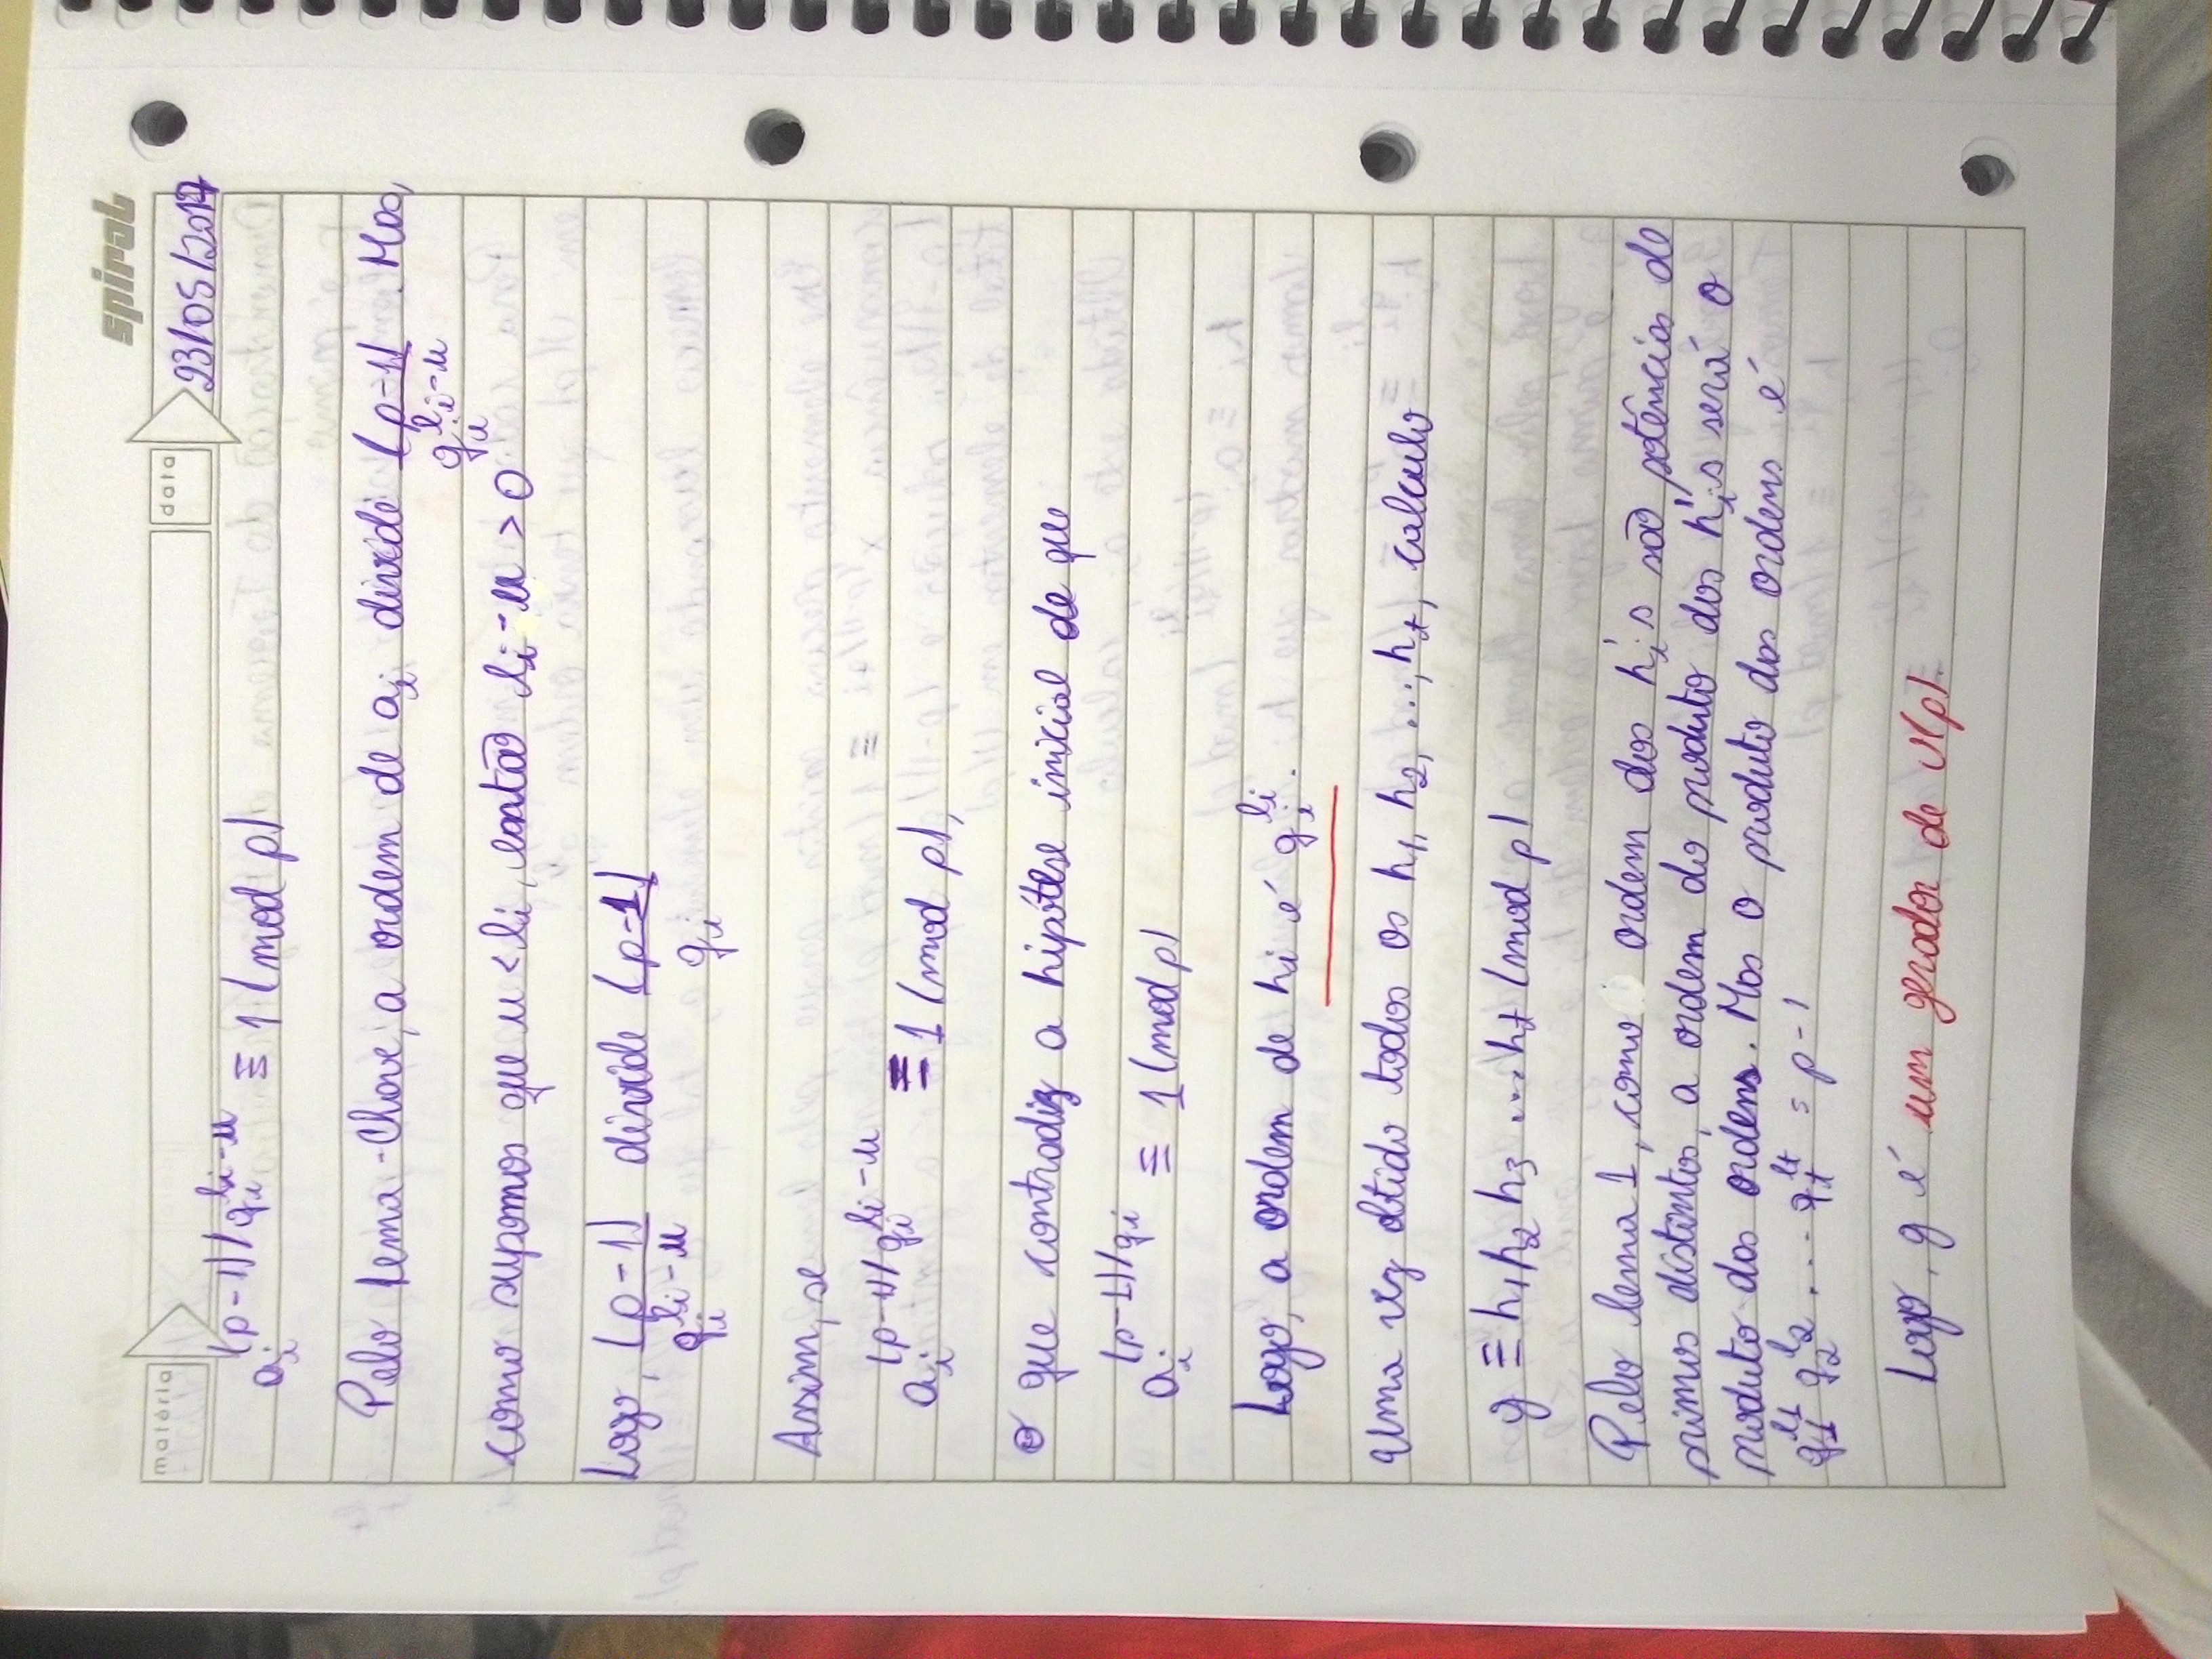 spiral
matéria
data
23/05/2017
a_i^{(p-1)/q_i^{l_i-u}} ≡ 1 (mod p)
Pelo Lema-Chave, a ordem de a_i divide (p-1)/q_i^{l_i-u}. Mas,
como supomos que u < l_i, então l_i - u > 0
Logo, (p-1)/q_i^{l_i-u} divide (p-1)/q_i
Assim, se
a_i^{(p-1)/q_i^{l_i-u}} ≡ 1 (mod p),
o que contradiz a hipótese inicial de que
a_i^{(p-1)/q_i} ≡ 1 (mod p)
Logo, a ordem de h_i é q_i^{l_i}.
Uma vez obtido todos os h_1, h_2, ..., h_t, calculo
g ≡ h_1 h_2 h_3 ... h_t (mod p)
Pelo lema 1, como ordem dos h_i's são potências de
primos distintos, a ordem do produto dos h_i's será o
produto das ordens. Mas o produto das ordens é
q_1^{l_1} q_2^{l_2} ... q_t^{l_t} = p - 1
Logo, g é um gerador de U(p).